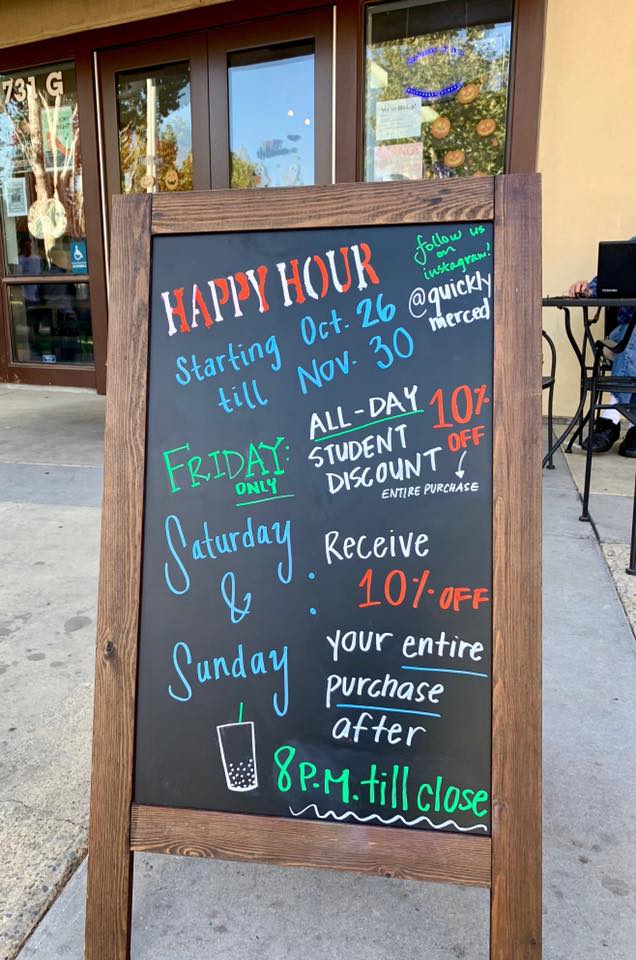 731 G
HAPPY HOUR
Starting Oct. 26
till Nov. 30
follow us
on
instagram!
@quickly
merced
FRIDAY:
ONLY
ALL-DAY
STUDENT
DISCOUNT
10%
OFF
ENTIRE PURCHASE
Saturday
&
Sunday
:
Receive
10% OFF
your entire
purchase
after
8 P.M. till close
TOSHIBA